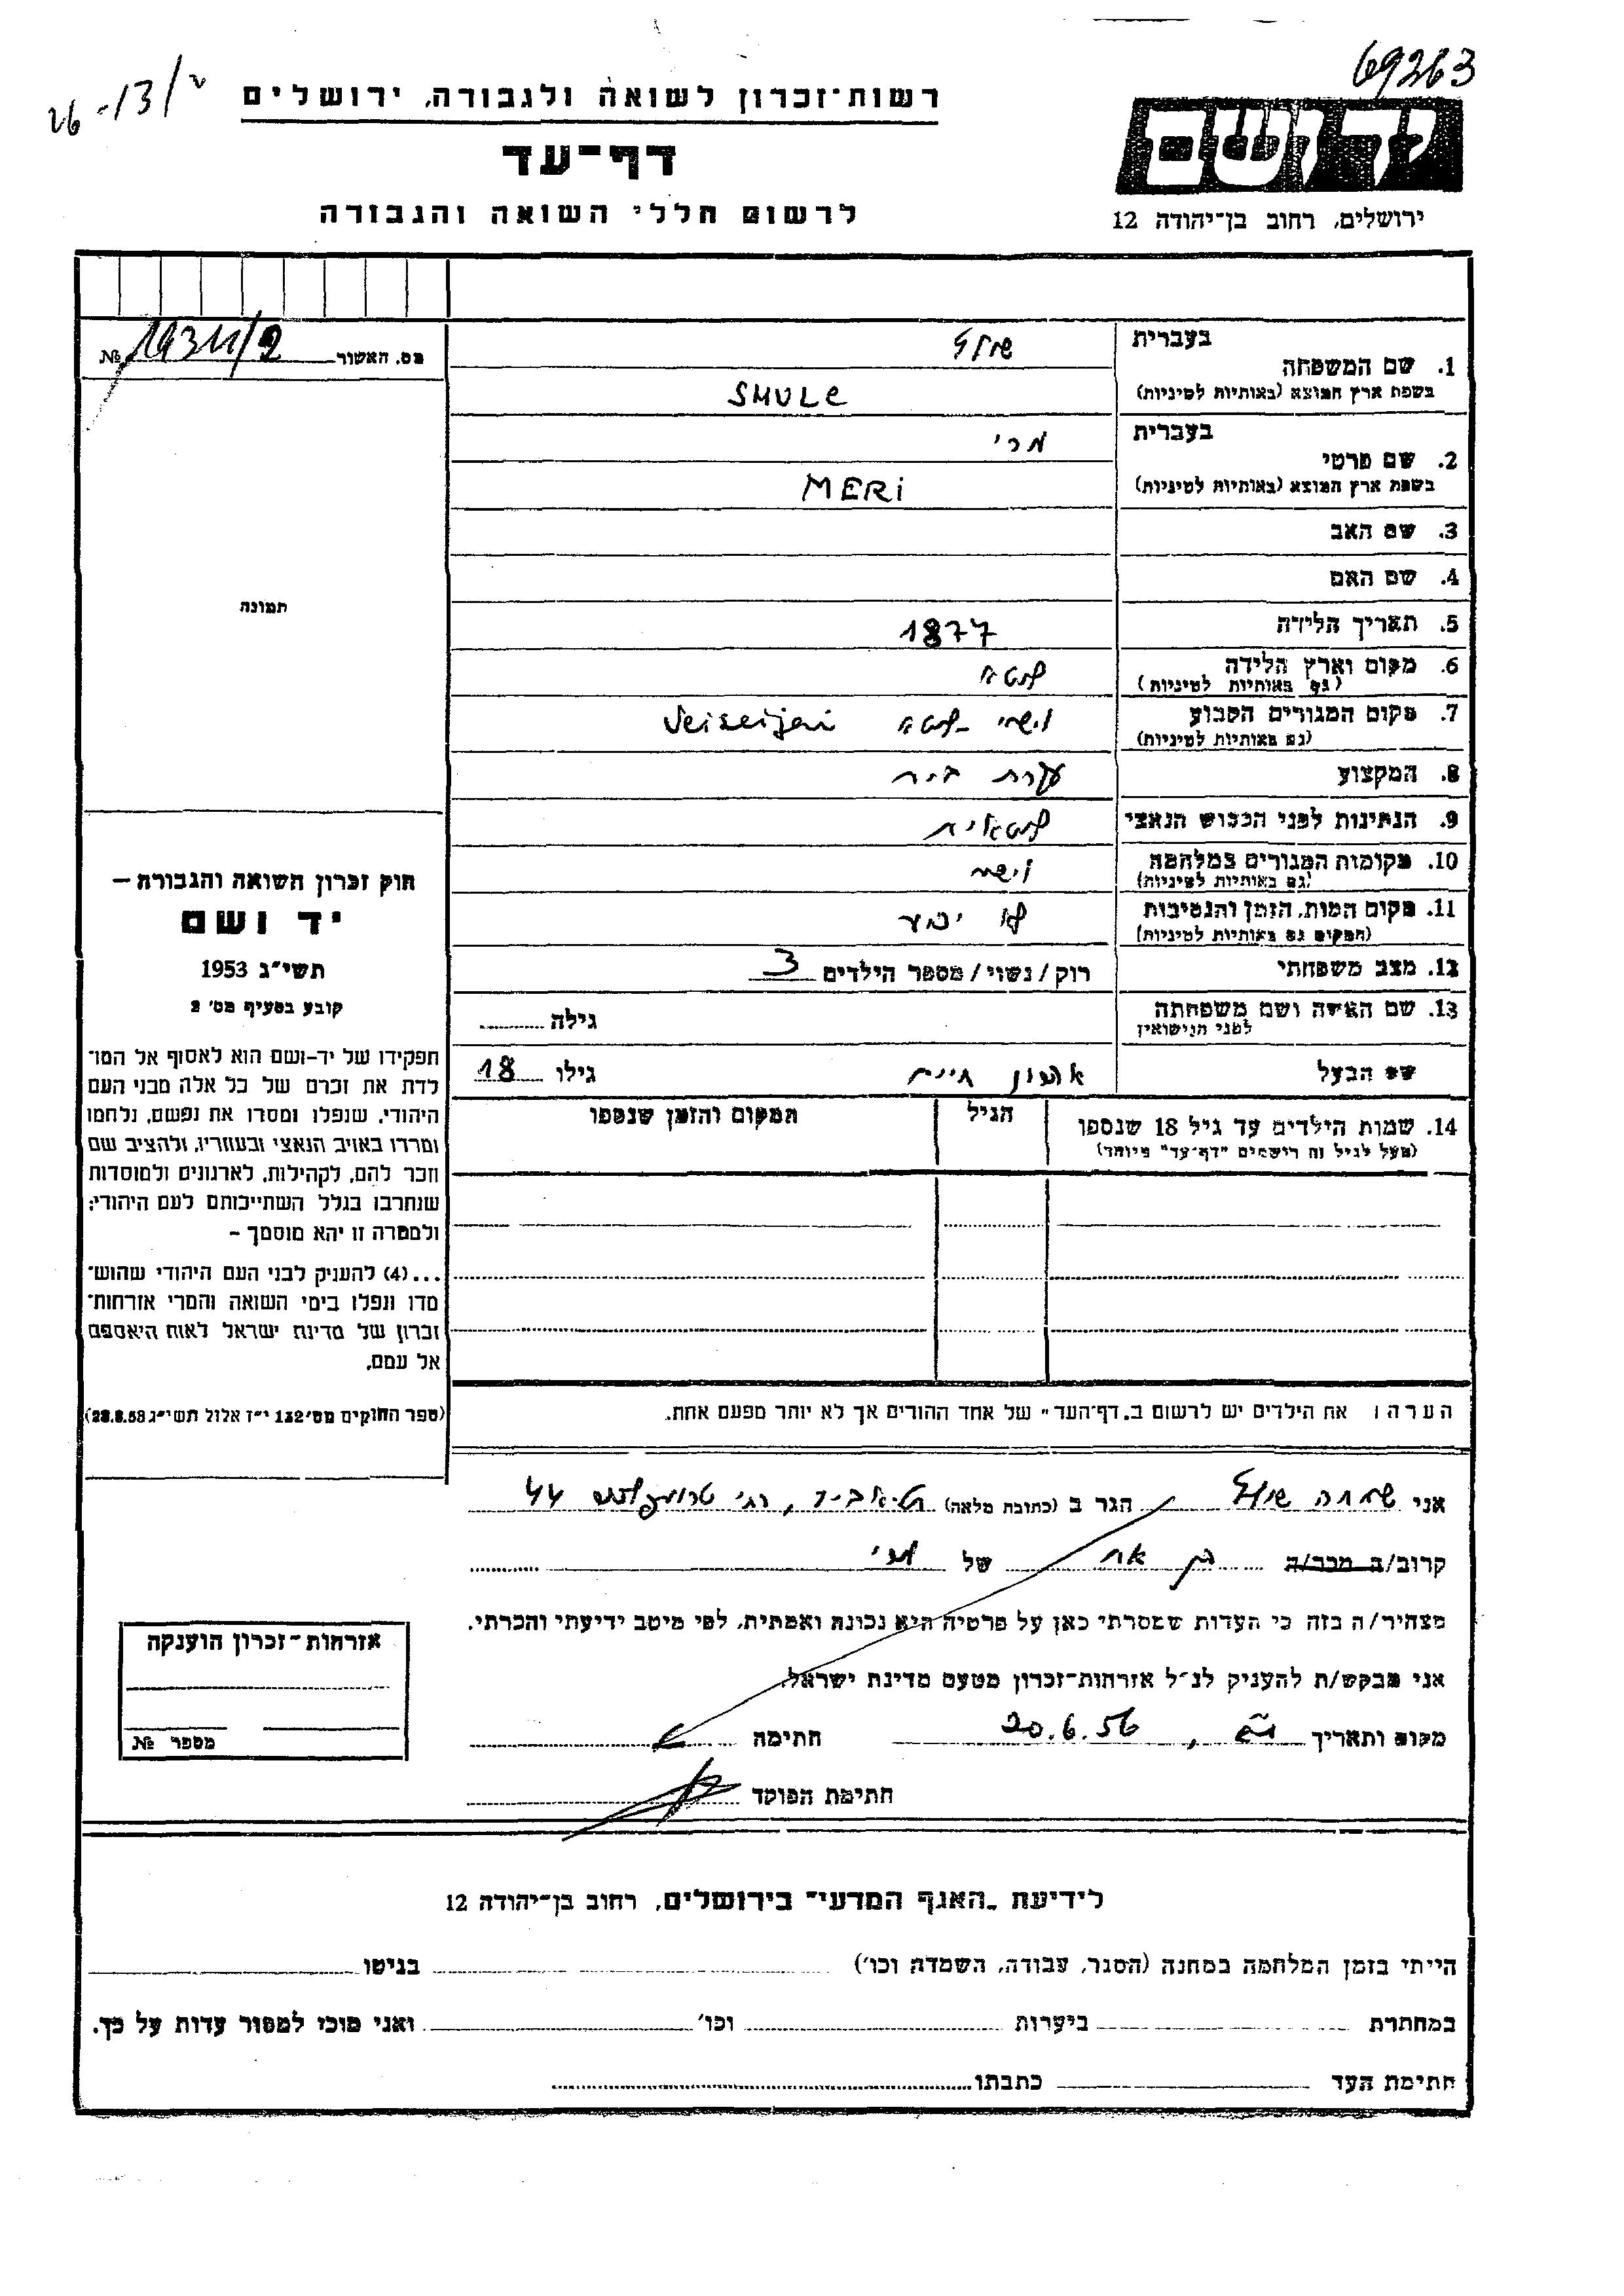 69263
26-13/2
רשות־זכרון לשואה ולגבורה, ירושלים
יד ושם
דף־עד
לרשום חללי השואה והגבורה
ירושלים, רחוב בן־יהודה 12
מס. האשור № 1931/2
1. שם המשפחה
בעברית
בשפת ארץ המוצא (באותיות לטיניות)
SMULE
2. שם פרטי
בעברית מרי
בשפת ארץ המוצא (באותיות לטיניות) MERi
3. שם האב
4. שם האם
5. תאריך הלידה 1877
6. מקום וארץ הלידה ליטא
(גם באותיות לטיניות)
7. מקום המגורים הקבוע ליטא Veiseijai
(גם באותיות לטיניות)
8. המקצוע עקרת בית
9. הנתינות לפני הכבוש הנאצי ליטאית
10. מקומות המגורים במלחמה
(גם באותיות לטיניות)
11. מקום המות, הזמן והנסיבות לא ידוע
(המקום גם באותיות לטיניות)
12. מצב משפחתי רוק/נשוי/מספר הילדים 3
13. שם האשה ושם משפחתה גילה
לפני הנישואין
שם הבעל אהרון חיים גילו 18
14. שמות הילדים עד גיל 18 שנספו הגיל המקום והזמן שנספו
(מעל לגיל זה רישמים "דף־עד" מיוחד)
תמונה
חוק זכרון השואה והגבורה –
יד ושם
תשי"ג 1953
קובע בסעיף מס' 2
תפקידו של יד-ושם הוא לאסוף אל המו־
לדת את זכרם של כל אלה מבני העם
היהודי, שנפלו ומסרו את נפשם, נלחמו
ומרדו באויב הנאצי ובעוזריו, ולהציב שם
וזכר להם, לקהילות, לארגונים ולמוסדות
שנחרבו בגלל השתייכותם לעם היהודי;
ולמטרה זו יהא מוסמך –
...(4) להעניק לבני העם היהודי שהוש־
מדו ונפלו בימי השואה והמרי אזרחות־
זכרון של מדינת ישראל לאות היאספם
אל עמם.
(ספר החוקים מס' 132 י"ז אלול תשי"ג 28.8.53)
הערה: את הילדים יש לרשום ב„דף־העד" של אחד ההורים אך לא יותר מפעם אחת.
אני שמחה הגר ב (כתובת מלאה) תל־אביב, רח' טרומפלדור 44
קרוב/ה מכר/ה בן אח של מרי
מצהיר/ה בזה כי העדות שמסרתי כאן על פרטיה היא נכונה ואמתית, לפי מיטב ידיעתי והכרתי.
אני מבקש/ת להעניק לנ"ל אזרחות־זכרון מטעם מדינת ישראל.
מקום ותאריך ת"א, 20.6.56 חתימה
חתימת הפוקד
אזרחות־זכרון הוענקה
מספר №
לידיעת „האגף המדעי" בירושלים, רחוב בן־יהודה 12
הייתי בזמן המלחמה במחנה (הסגר, עבודה, השמדה וכו') בגיטו
במחתרת ביערות וכו' ואני מוכן למסור עדות על כך.
חתימת העד כתבתו